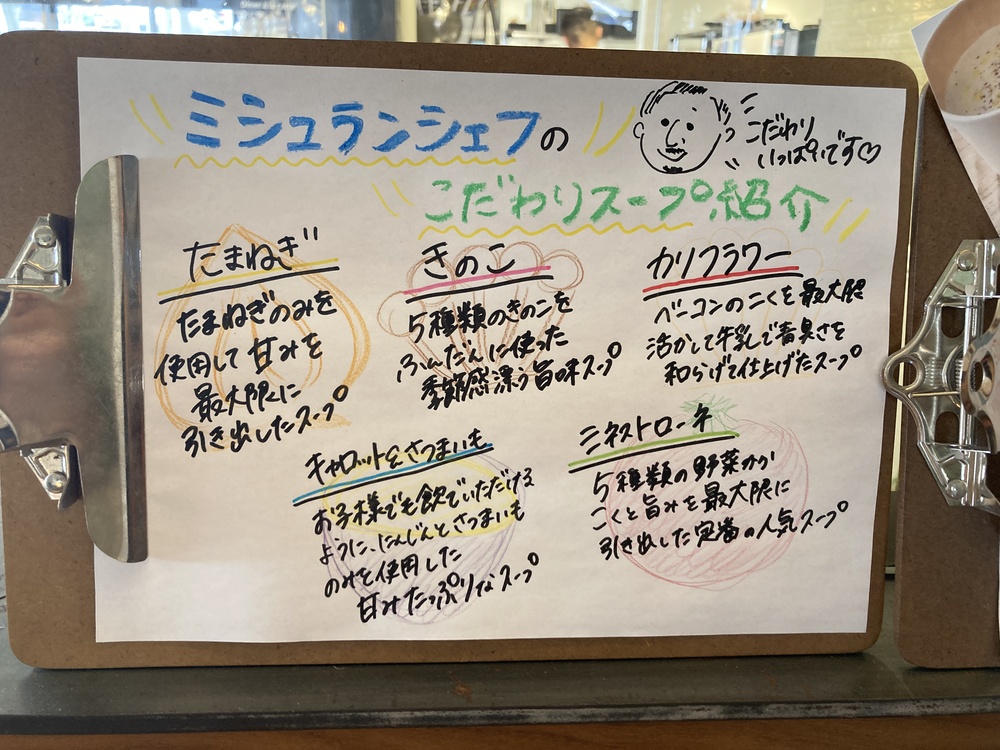 ミシュランシェフの
こだわり
いっぱいです♡
こだわりスープ紹介
たまねぎ
たまねぎのみを
使用して甘みを
最大限に
引き出したスープ
きのこ
5種類のきのこを
ふんだんに使った
季節感漂う旨味スープ
カリフラワー
ベーコンのこくを最大限
活かして牛乳で青臭さを
和らげて仕上げたスープ
キャロットとさつまいも
お子様でも飲でいただける
ように、にんじんとさつまいも
のみを使用した
甘みたっぷりなスープ
ミネストローネ
5種類の野菜から
こくと旨みを最大限に
引き出した定番の人気スープ